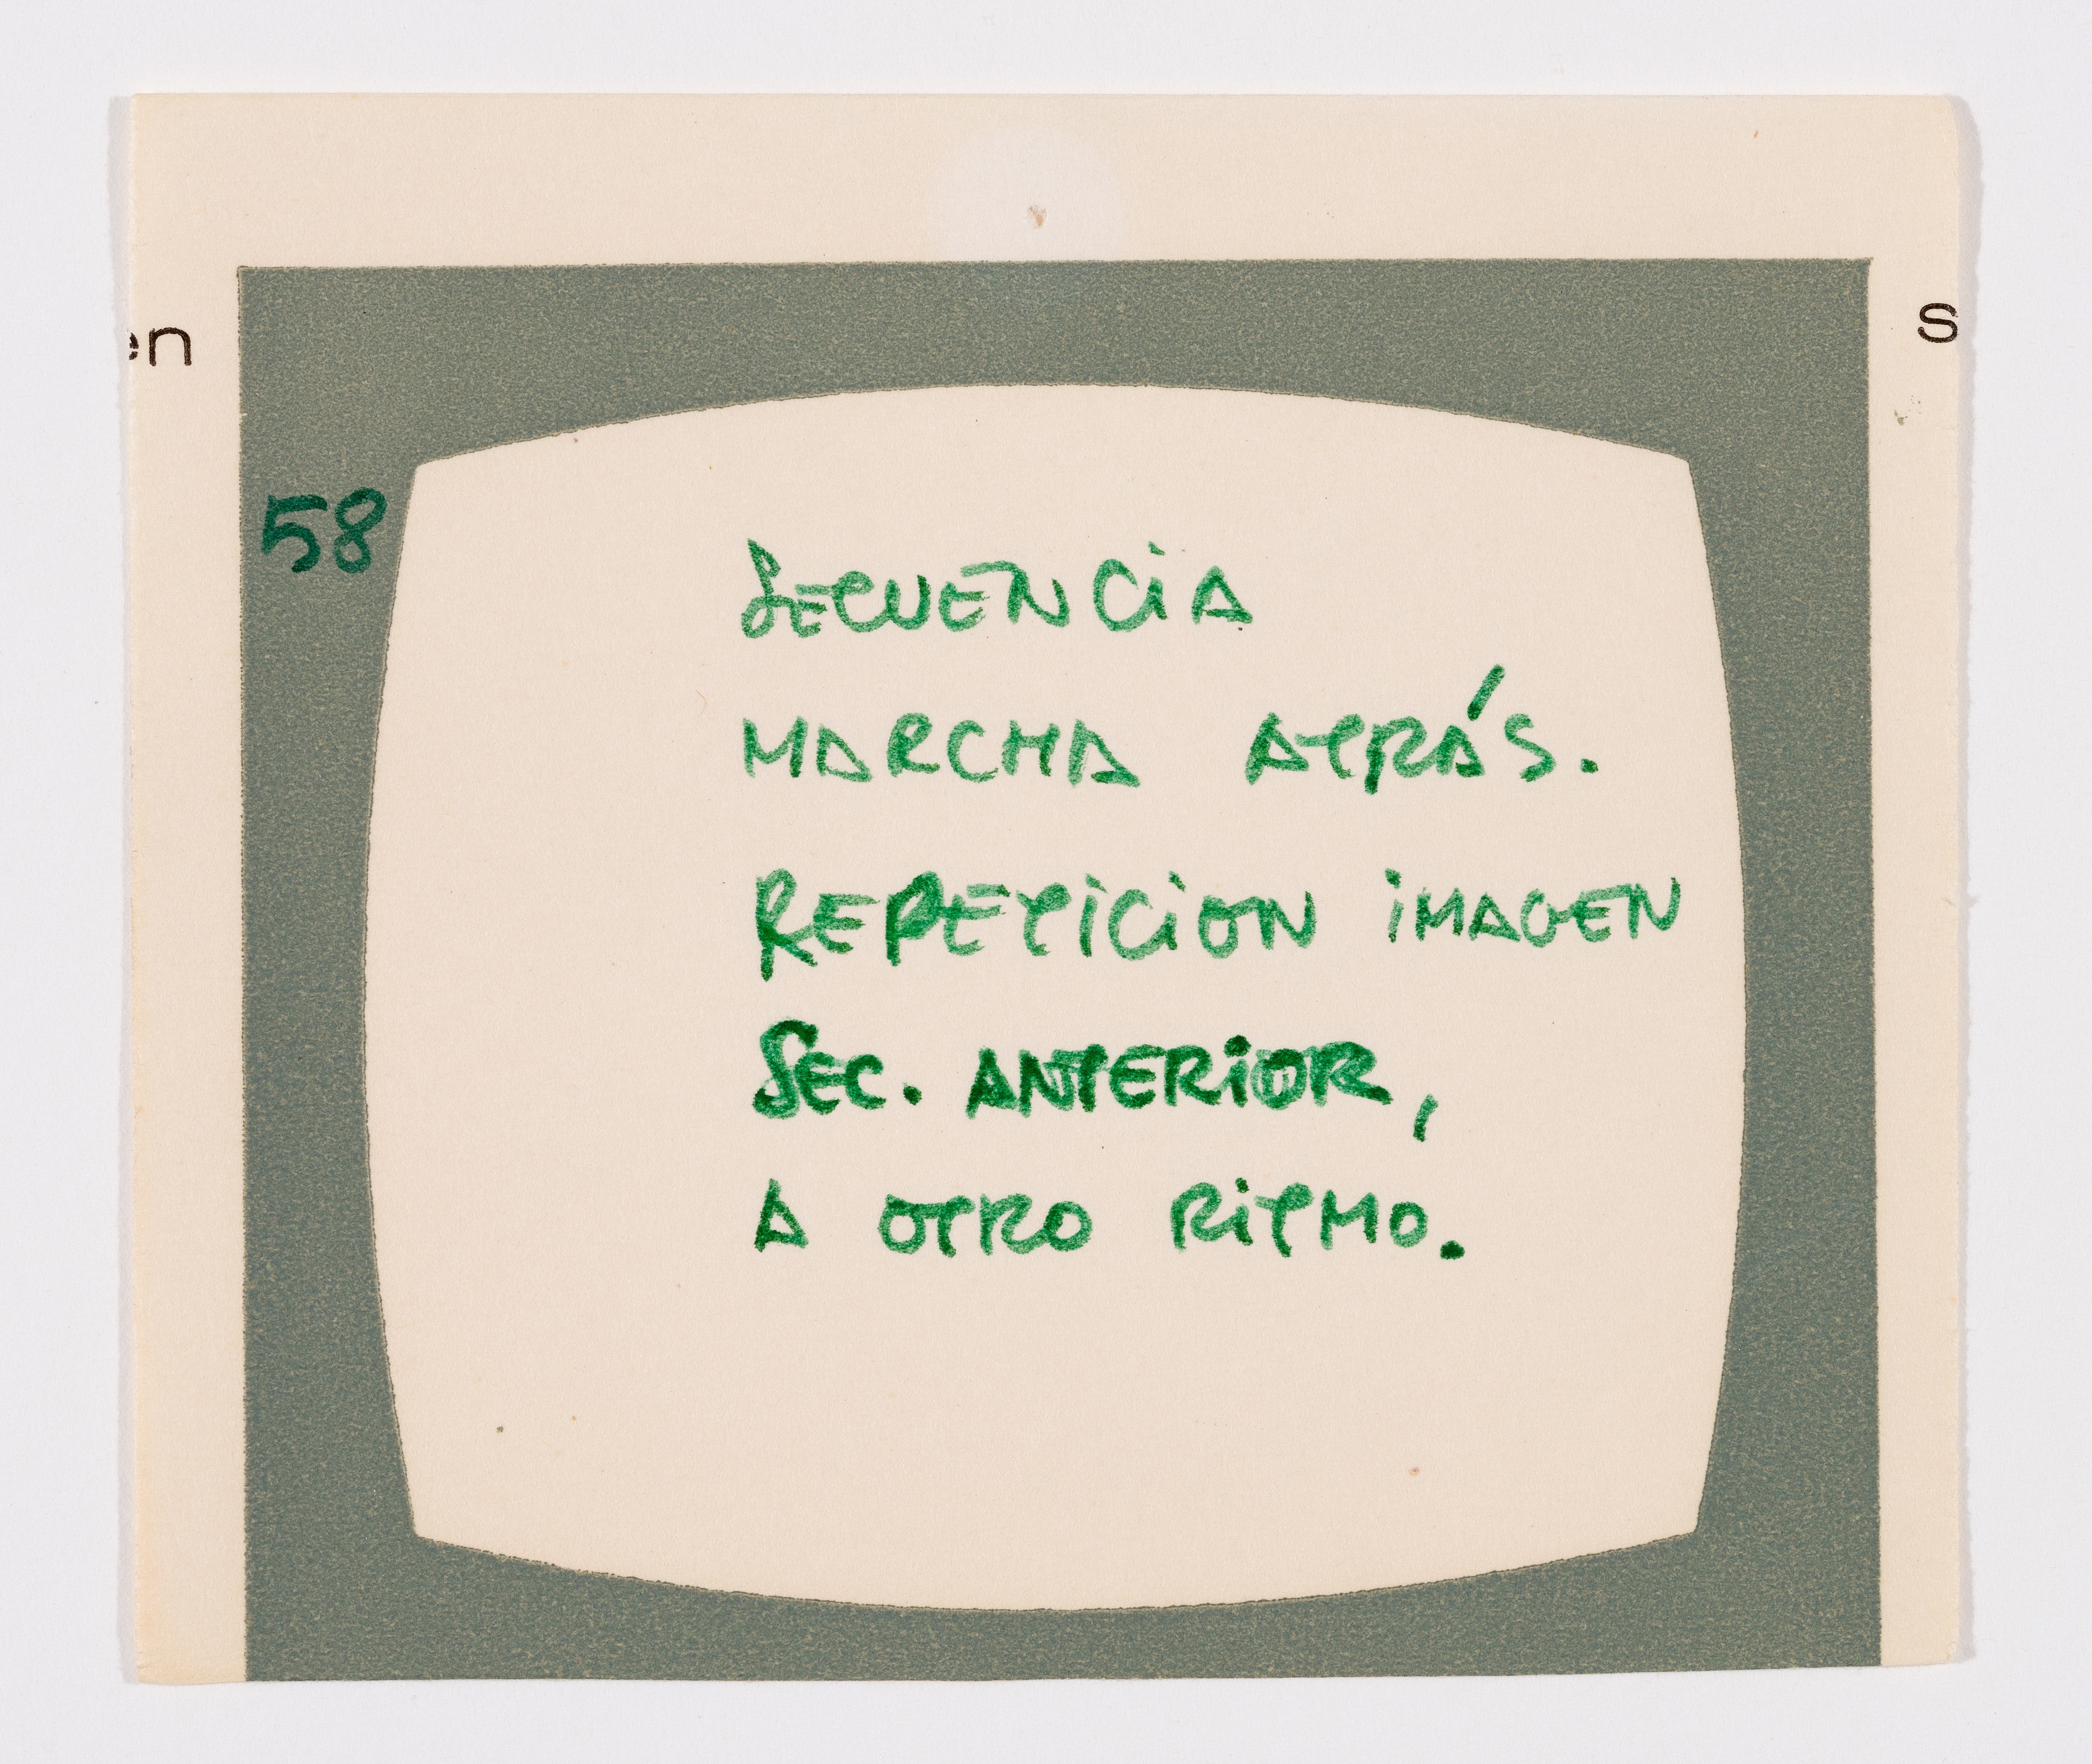 en
s
58
SECUENCIA
MARCHA ATRÁS.
REPETICION IMAGEN
SEC. ANTERIOR,
A OTRO RITMO.